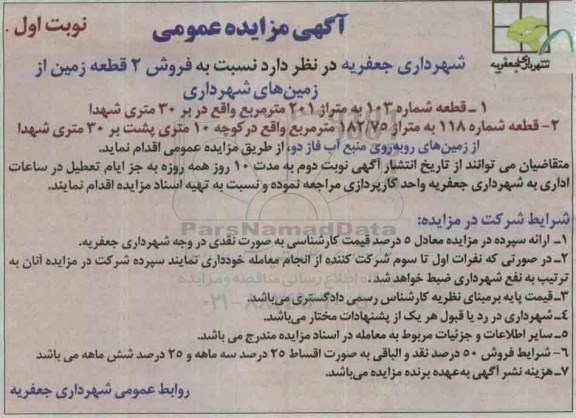 آگهی مزایده عمومی
نوبت اول .
شهرداری جعفریه
شهرداری جعفریه در نظر دارد نسبت به فروش ۲ قطعه زمین از
زمین‌های شهرداری
۱ ـ قطعه شماره ۱۰۳ به متراژ ۲۰۱ مترمربع واقع در بر ۳۰ متری شهدا
۲- قطعه شماره ۱۱۸ به متراژ ۱۸۲/۷۵ مترمربع واقع درکوچه ۱۰ متری پشت بر ۳۰ متری شهدا
از زمین‌های روبه‌روی منبع آب فاز دو، از طریق مزایده عمومی اقدام نماید.
متقاضیان می توانند از تاریخ انتشار آگهی نوبت دوم به مدت ۱۰ روز همه روزه به جز ایام تعطیل در ساعات
اداری به شهرداری جعفریه واحد کارپردازی مراجعه نموده و نسبت به تهیه اسناد مزایده اقدام نمایند.
شرایط شرکت در مزایده:
۱ـ ارائه سپرده در مزایده معادل ۵ درصد قیمت کارشناسی به صورت نقدی در وجه شهرداری جعفریه.
۲ـ در صورتی که نفرات اول تا سوم شرکت کننده از انجام معامله خودداری نمایند سپرده شرکت در مزایده آنان به
ترتیب به نفع شهرداری ضبط خواهد شد.
۳ـ قیمت پایه برمبنای نظریه کارشناس رسمی دادگستری می‌باشد.
۴ـ شهرداری در رد یا قبول هر یک از پشنهادات مختار می‌باشد.
۵ـ سایر اطلاعات و جزئیات مربوط به معامله در اسناد مزایده مندرج می باشد.
۶- شرایط فروش ۵۰ درصد نقد و الباقی به صورت اقساط ۲۵ درصد سه ماهه و ۲۵ درصد شش ماهه می باشد
۷ـ هزینه نشر آگهی به‌عهده برنده مزایده می‌باشد.
روابط عمومی شهرداری جعفریه
ParsNamadData